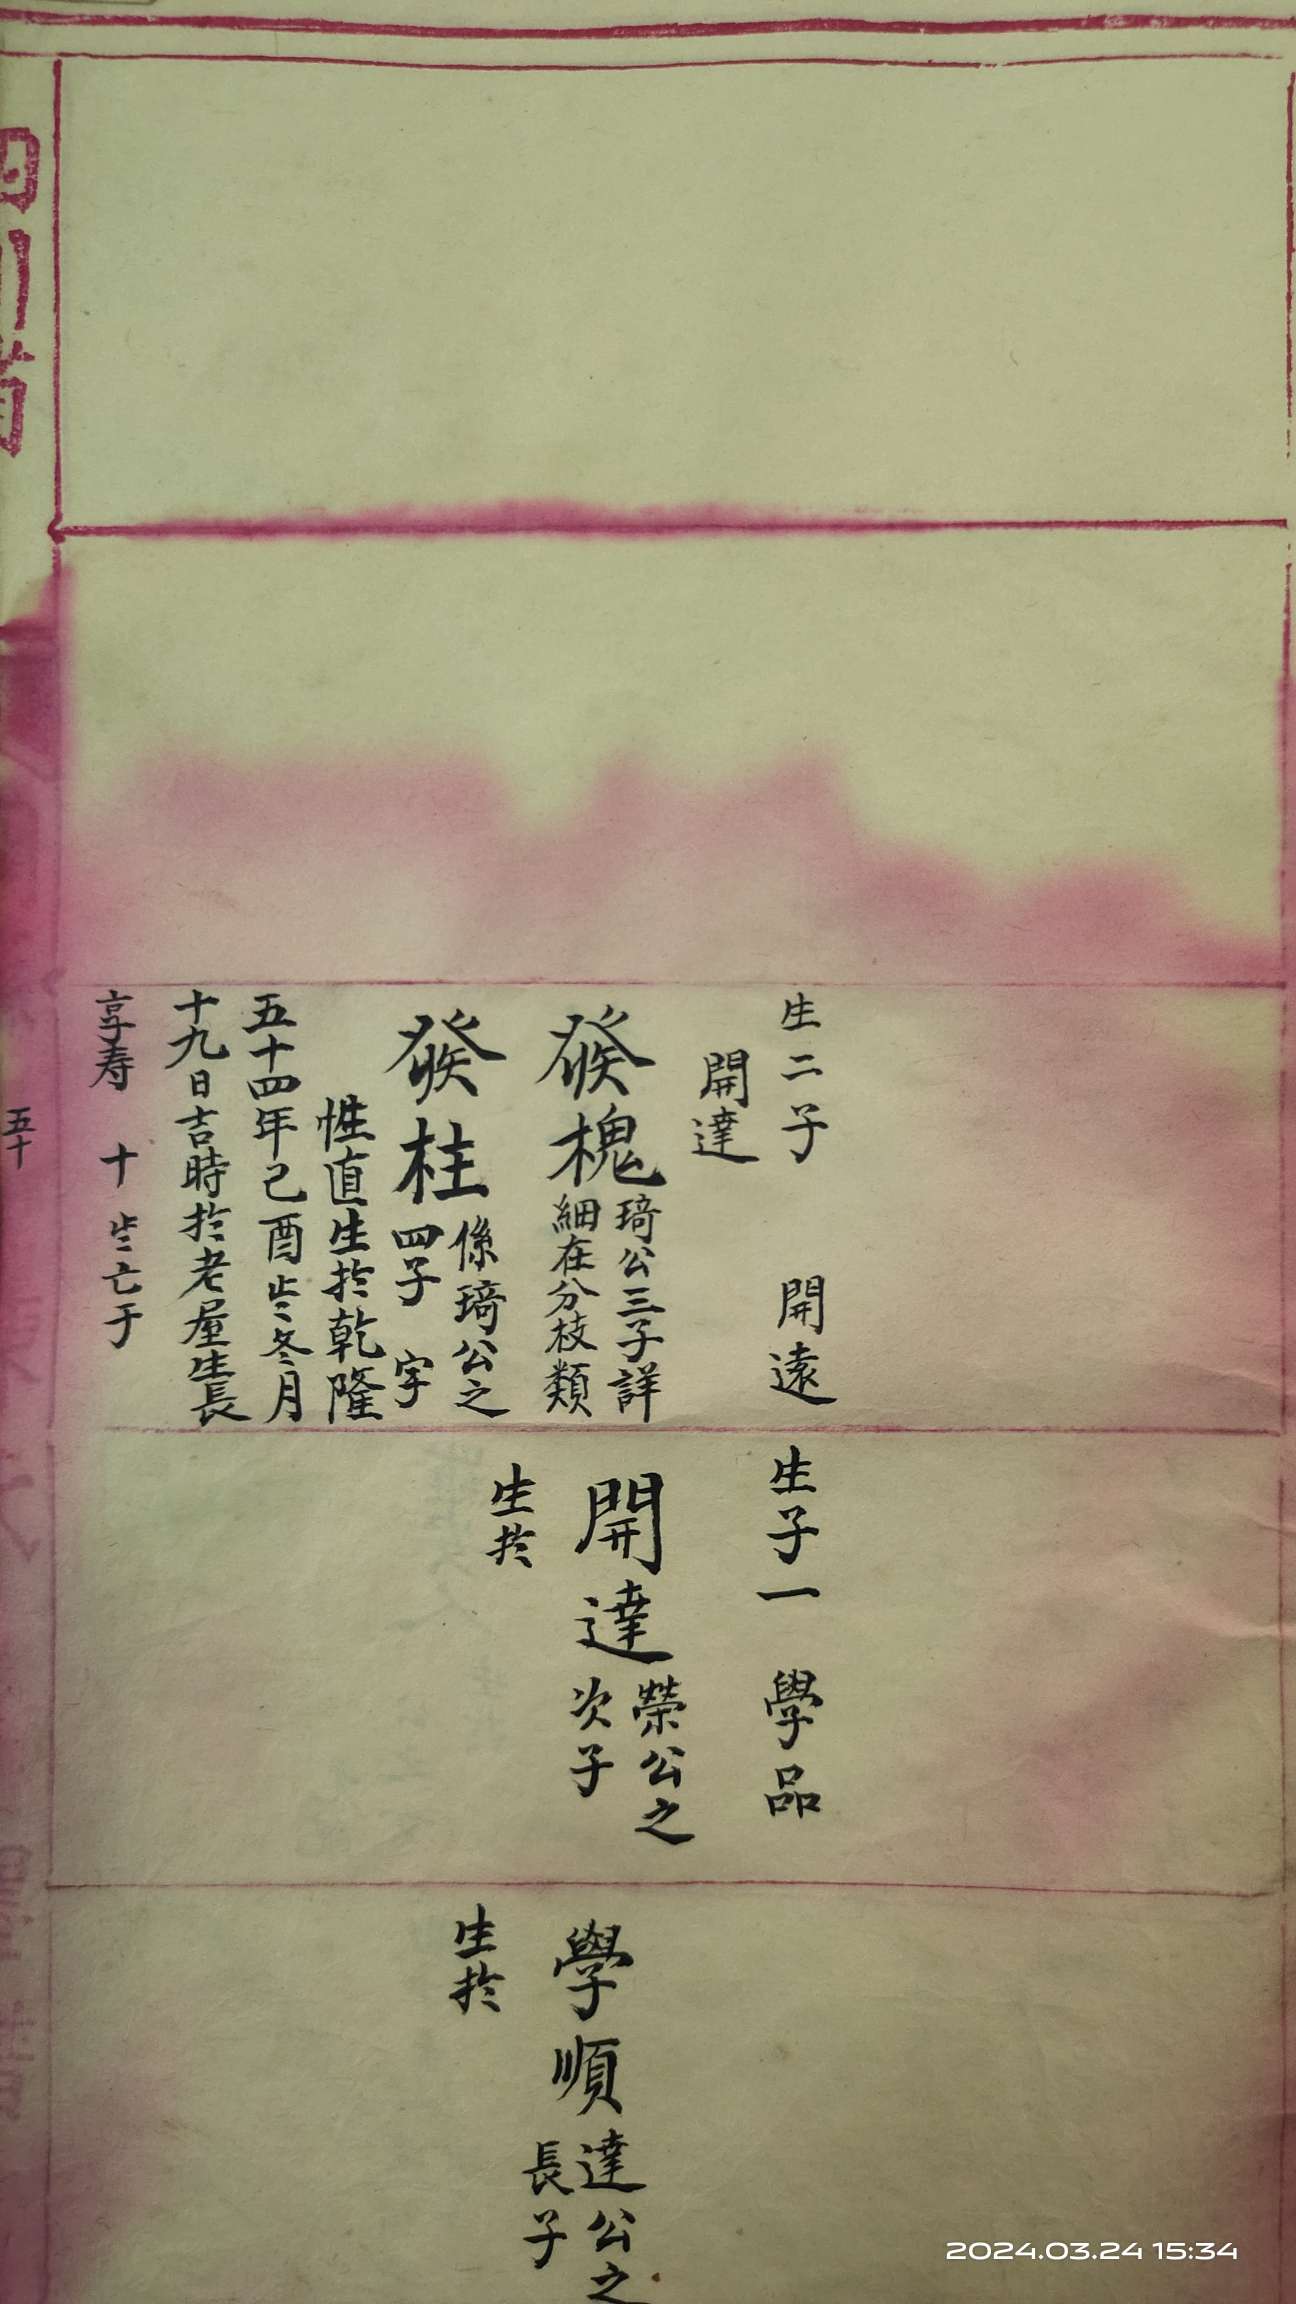 生二子 開遠
開達
發槐
琦公三子詳
細在分枝類
發柱
係琦公之
四子 字
性直生於乾隆
五十四年己酉歲冬月
十九日吉時於老屋生長
享寿 十 歲亡于
生子一 學品
開達
榮公之
次子
生於
學順
達公之
長子
生於
四川省
五十
2024.03.24 15:34